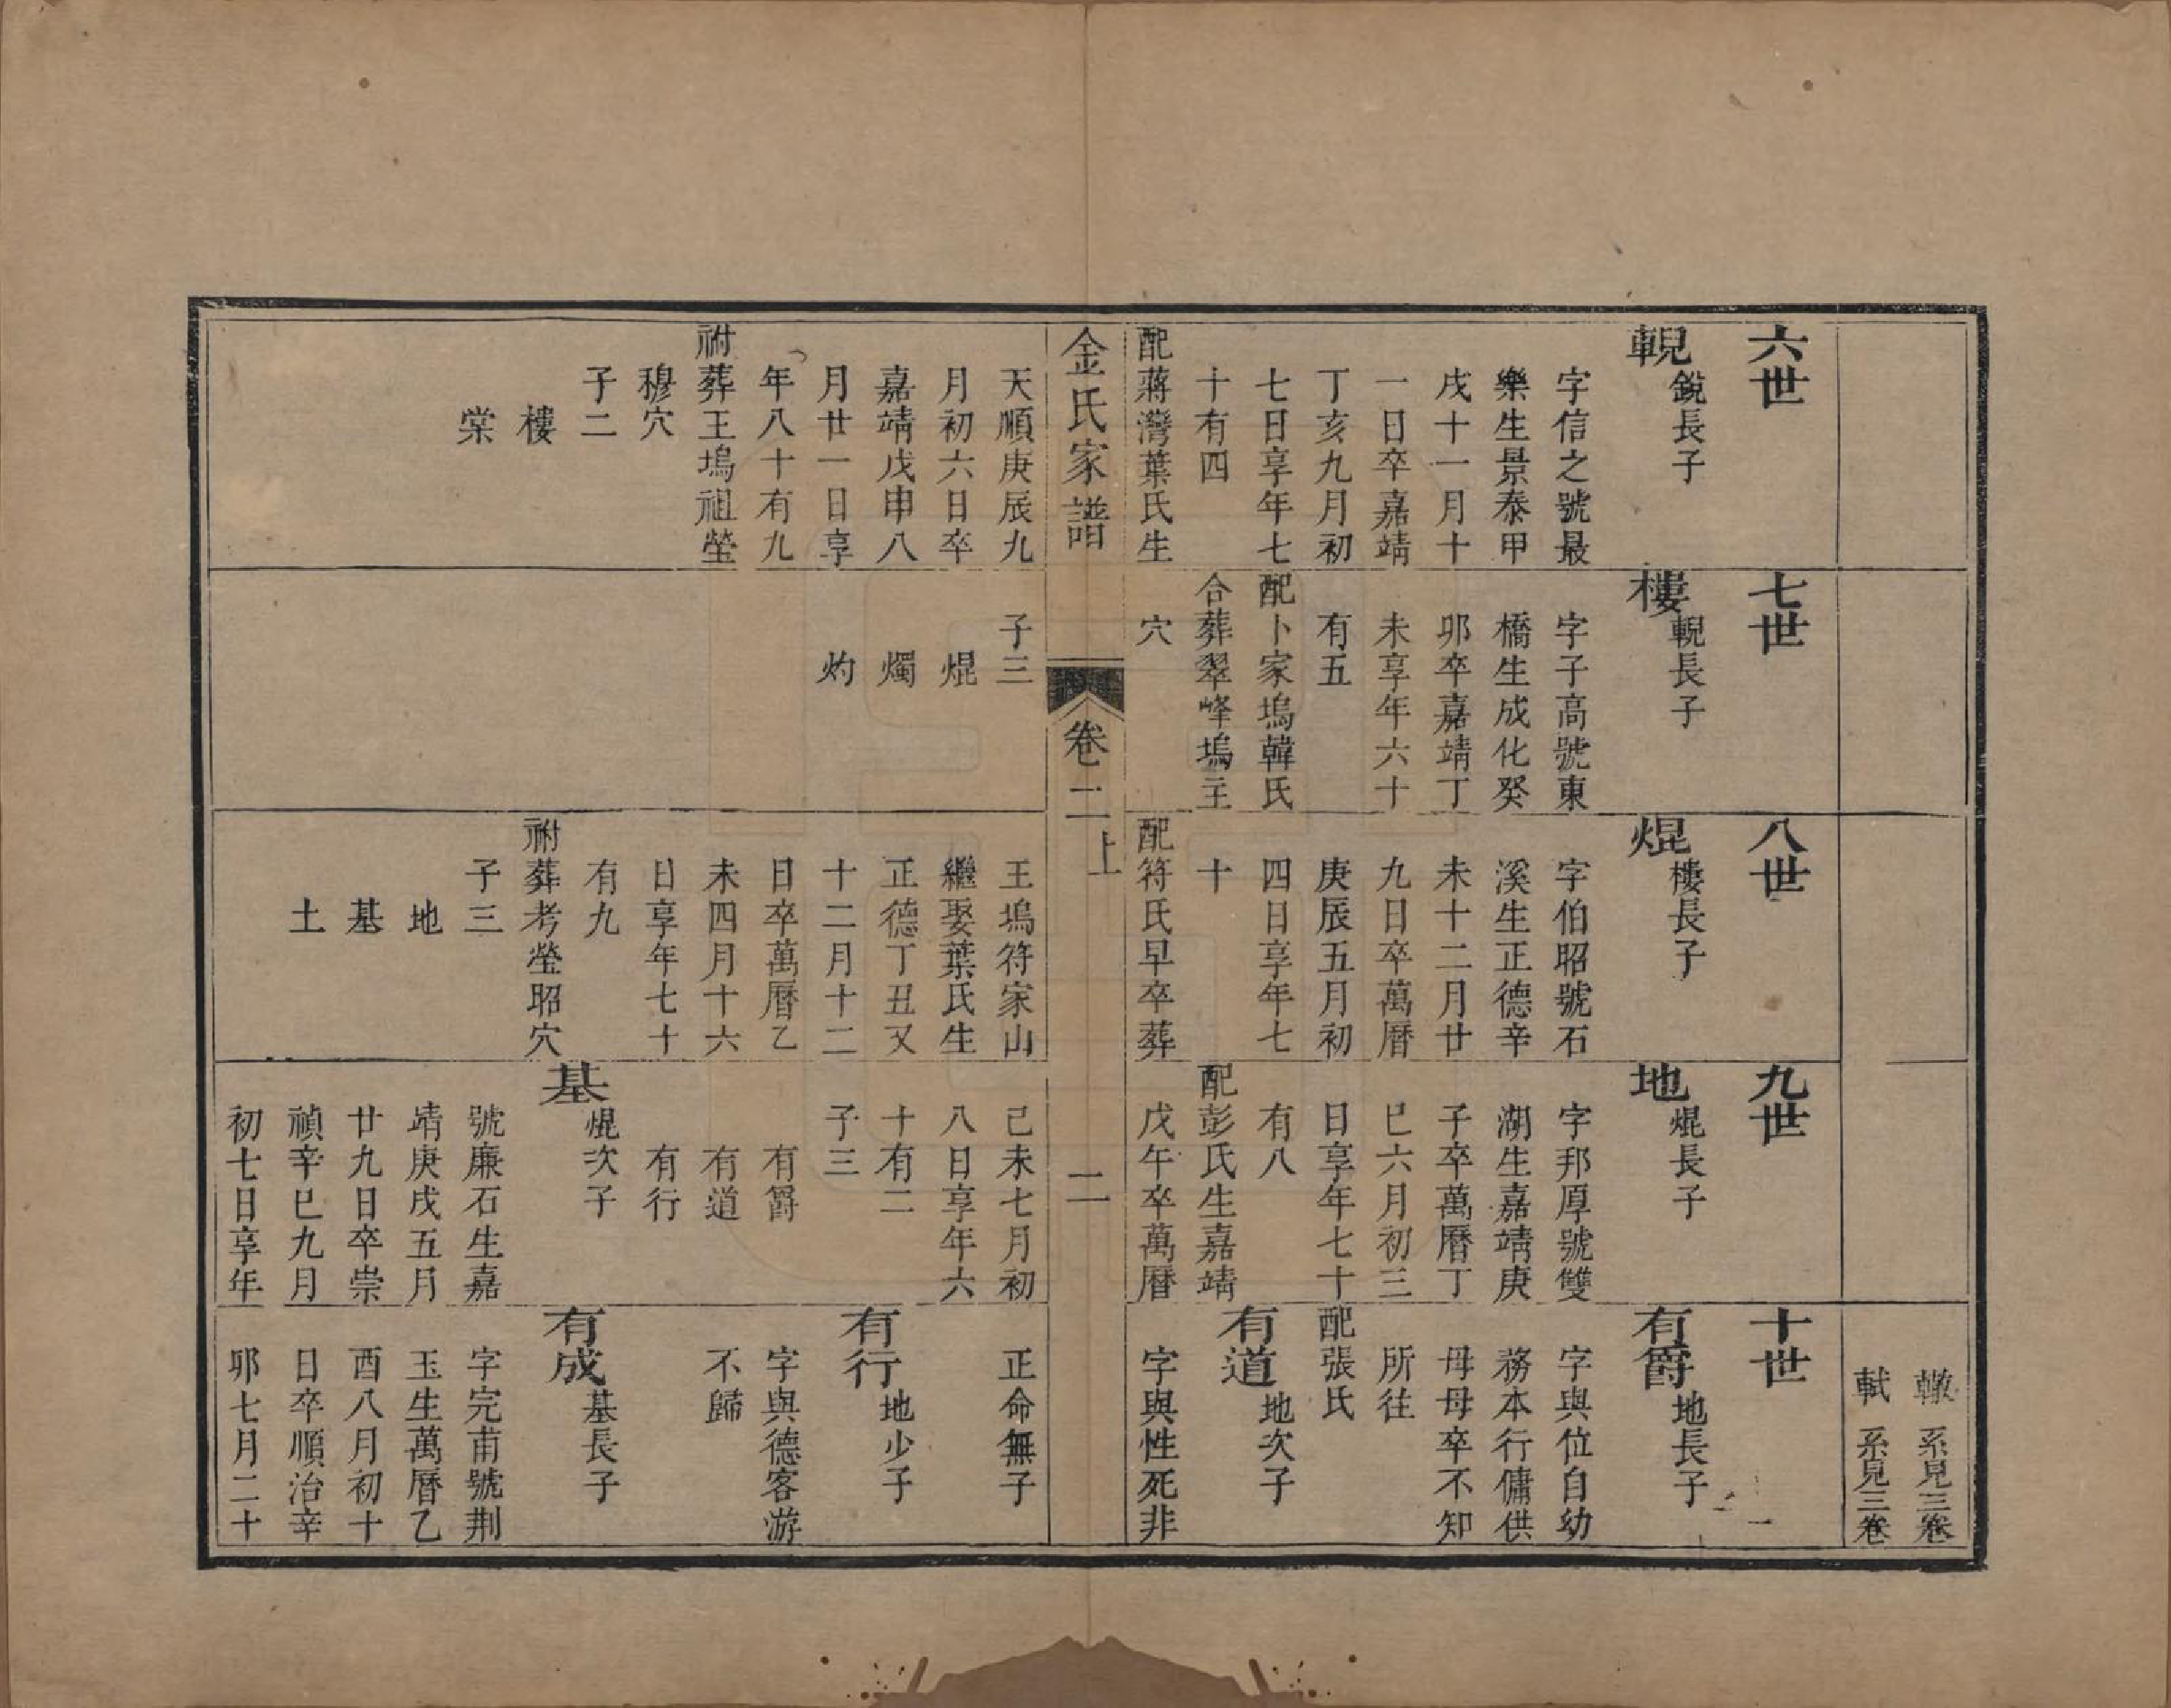 轍 系見三卷
軾 系見三卷
六世
輗 鋭長子
字信之號最
樂生景泰甲
戌十一月十
一日卒嘉靖
丁亥九月初
七日享年七
十有四
配蔣灣葉氏生
天順庚辰九
月初六日卒
嘉靖戊申八
月廿一日享
年八十有九
祔葬王塢祖塋
穆穴
子二
樓
棠
七世
樓 輗長子
字子高號東
橋生成化癸
卯卒嘉靖丁
未享年六十
有五
配卜家塢韓氏
合葬翠峰塢主
穴
子三
焜
燭
灼
八世
焜 樓長子
字伯昭號石
溪生正德辛
未十二月廿
九日卒萬曆
庚辰五月初
四日享年七
十
配符氏早卒葬
王塢符家山
繼娶葉氏生
正德丁丑又
十二月十二
日卒萬曆乙
未四月十六
日享年七十
有九
祔葬考塋昭穴
子三
地
基
土
九世
地 焜長子
字邦厚號雙
湖生嘉靖庚
子卒萬曆丁
巳六月初三
日享年七十
有八
配彭氏生嘉靖
戊午卒萬曆
己未七月初
八日享年六
十有二
子三
有爵
有道
有行
基 焜次子
號廉石生嘉
靖庚戌五月
廿九日卒崇
禎辛巳九月
初七日享年
十世
有爵 地長子
字與位自幼
務本行傭供
母母卒不知
所往
配張氏
有道 地次子
字與性死非
正命無子
有行 地少子
字與德客游
不歸
有成 基長子
字完甫號荆
玉生萬曆乙
酉八月初十
日卒順治辛
卯七月二十
金氏家譜
卷二上
二